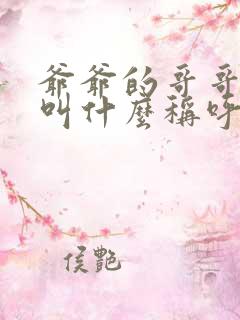 爺爺的哥哥
叫什麼稱呼
侯艷